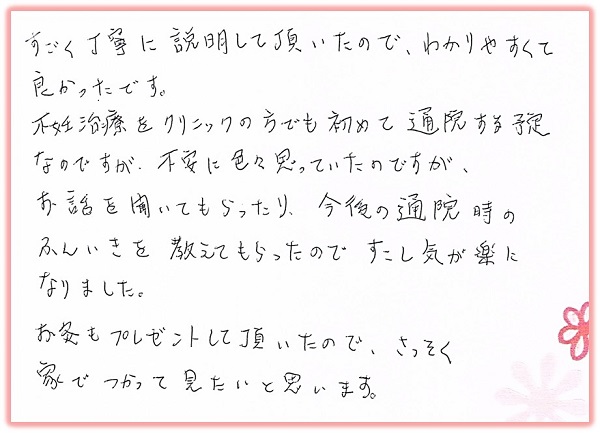 すごく丁寧に説明して頂いたので、わかりやすくて
良かったです。
不妊治療をクリニックの方でも初めて通院する予定
なのですが、不安に色々思っていたのですが、
お話を聞いてもらったり、今後の通院時の
ふんいきを教えてもらったのですこし気が楽に
なりました。
お灸もプレゼントして頂いたので、さっそく
家でつかって見たいと思います。